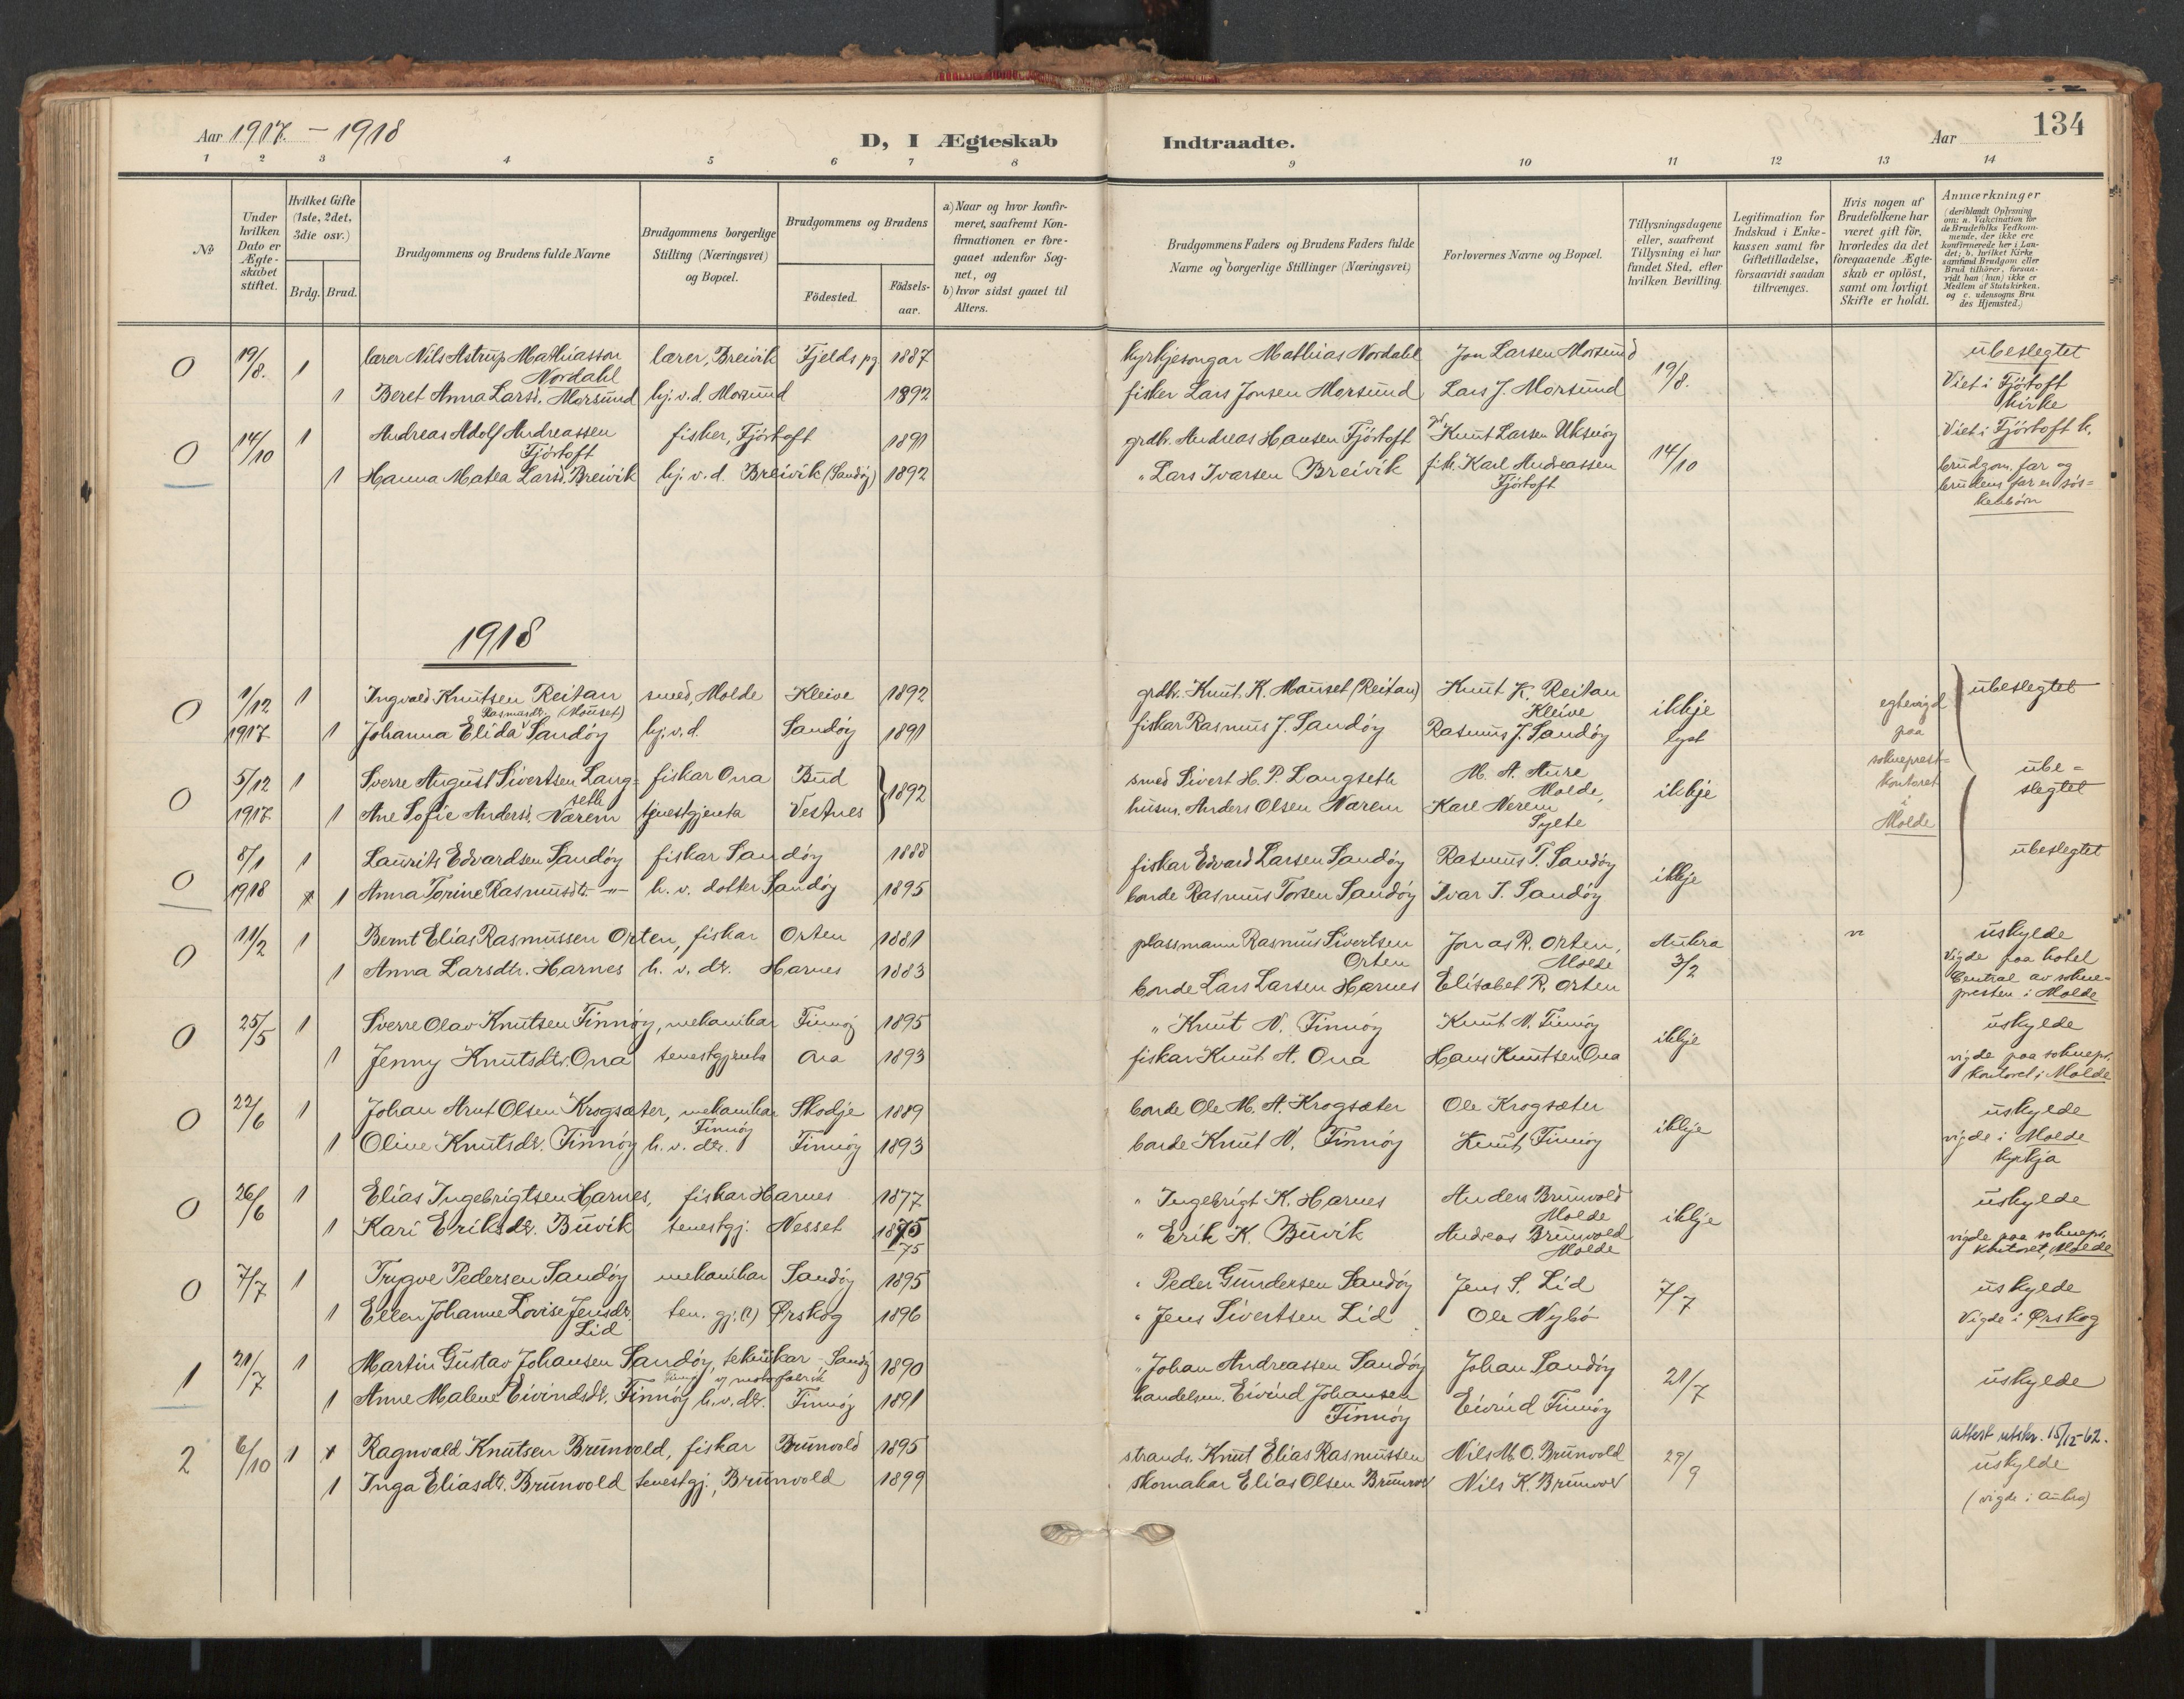 Aar 1917. - 1918
D, I Ægteskab Indtraadte.
Aar 134
1 2 3 4 5 6 7 8 9 10 11 12 13 14
No
Under hvilken Dato er Ægte-skabet stiftet.
Hvilket Gifte (1ste, 2det, 3die osv.)
Brdg. Brud.
Brudgommens og Brudens fulde Navne
Brudgommens borgerlige Stilling (Næringsvei) og Bopæl.
Brudgommens og Brudens
Födested. Födsels-aar.
a) Naar og hvor konfir-meret, saafremt Kon-firmationen er fore-gaaet udenfor Sog-net, og
b) hvor sidst gaaet til Alters.
Brudgommens Faders og Brudens Faders fulde Navne og borgerlige Stillinger (Næringsvei)
Forlovernes Navne og Bopæl.
Tillysningsdagene eller, saafremt Tillysning ei har fundet Sted, efter hvilken Bevilling.
Legitimation for Indskud i Enke-kassen samt for Giftetilladelse, forsaavidt saadan tiltrænges.
Hvis nogen af Brudefolkene har været gift för, hvorledes da det foregaaende Ægte-skab er oplöst, samt om lovligt Skifte er holdt.
Anmærkninger
(deriblandt Oplysning om: a. Vakcination for de Brudefolks Vedkom-mende, der ikke ere konfirmerede her i Lan-det; b. hvilket Kirke samfund Brudgom eller Brud tilhörer, forsaa-vidt han (hun) ikke er Medlem af Statskirken. og c. udensogns Bru des Hjemsted.)
0 19/8. 1 lærer Nils Astrup Mathiasson Nordahl lærer, Breivik Fjelds pg 1887 kyrkjesongar Mathias Nordahl Jon Larsen Morsund 19/8. ubeslegtet
1 Beret Anna Larsd. Morsund hj.v.d. Morsund 1892 fisker Lars Jonsen Morsund Lars J. Morsund Viet i Fjörtoft kirke
0 14/10 1 Andreas Adolf Andreassen Fjörtoft fisker, Fjörtoft 1891 grdbr. Andreas Hansen Fjörtoft Knut Larsen Uksnöy 14/10 Viet i Fjörtoft k.
1 Hanna Matea Larsd. Breivik hj. v. d. Breivik (Sandöy) 1892 " Lars Ivarsen Breivik fisk. Karl Andreassen Fjörtoft brudgom. far og brudens far er sös=kenbörn
1918
0 1/12 1917. 1 Ingvald Knutsen Reitan (Mauset) smed, Molde Kleive 1892 grdbr. Knut K. Mauset (Reitan) Knut K. Reitan Kleive ikkje lyst egtevigd paa sokneprest=kontoret i Molde ubeslegtet
1 Johanna Elida Rasmusdt. Sandöy hj.v.d. Sandöy 1891 fiskar Rasmus J. Sandöy Rasmus J. Sandöy
0 5/12 1917. 1 Sverre August Sivertsen Lang=seth fiskar Ona Bud 1892 smed Sivert H. P. Langseth M. A. Aure Molde, ikkje ube=slegtet
1 Ane Sofie Andersd. Nærem tjenestgjenta Vestnes husm. Anders Olsen Nærem Karl Nerem Sylte
0 8/1 1918 1 Laurits Edvardsen Sandöy fiskar Sandöy 1888 fiskar Edvard Larsen Sandöy Rasmus T. Sandöy ikkje ubeslegtet
1 Anna Torine Rasmusdt. -"- h. v. dotter Sandöy 1895 bonde Rasmus Torsen Sandöy Ivar I. Sandöy
0 11/2 1 Bernt Elias Rasmussen Orten, fiskar Orten 1881 plassmann Rasmus Sivertsen Orten Jonas R. Orten, Molde Aukra 3/2 uskylde
1 Anna Larsdtr. Harnes h. v. dtr. Harnes 1883 bonde Lars Larsen Harnes Elisabet R. Orten Vigde paa hotel Central av sokne-presten i Molde
0 25/5 1 Sverre Olav Knutsen Finnöy, mekanikar Finnöy 1895 " Knut N. Finnöy Knut N. Finnöy ikkje uskylde
1 Jenny Knutsdtr. Ona tenestgjenta Ona 1893 fiskar Knut A. Ona Hans Knutsen Ona vigde paa soknepr. kontoret i Molde
0 22/6 1 Johan Arnt Olsen Krogsæter, mekanikar Finnöy Skodje 1889 bonde Ole M. A. Krogsæter Ole Krogsæter ikkje uskylde
1 Oline Knutsdr. Finnöy h. v. dtr. Finnöy 1893 bonde Knut N. Finnöy Knut Finnöy vigde i Molde kyrkja
0 26/6 1 Elias Ingebrigtsen Harnes, fiskar Harnes 1877 " Ingebrigt K. Harnes Anders Brunvold Molde ikkje uskylde
1 Kari Eriksdr. Buvik tenestgj. Nesset 1875 75 " Erik K. Buvik Andreas Brunvold Molde vigde paa soknepr. kontoret, Molde
0 7/7 1 Trygve Pedersen Sandöy mekanikar Sandöy 1895 " Peder Gundersen Sandöy Jens S. Lid 7/7 uskylde
1 Ellen Johanne Lovise Jensdr. Lid ten. gj. Ørskog 1896 " Jens Sivertsen Lid Ole Nybö Vigde i Ørskog
1 21/7 1 Martin Gustav Johansen Sandöy, teknikar Finnöy motorfabrik Sandöy 1890 " Johan Andreassen Sandöy Johan Sandöy 21/7 uskylde
1 Anne Malene Eivindsdt. Finnöy h. v. dtr. Finnöy 1891 handelsm. Eivind Johansen Finnöy Eivind Finnöy
2 6/10 1 Ragnvald Knutsen Brunvold, fiskar Brunvold 1895 strands. Knut Elias Rasmussen Nils M. O. Brunvold 29/9 Attest utskr. 15/12-62. uskylde
1 Inga Eliasdt. Brunvold tenestgj., Brunvold 1899 Skomakar Elias Olsen Brunvold Nils K. Brunvol (vigde i Aukra)